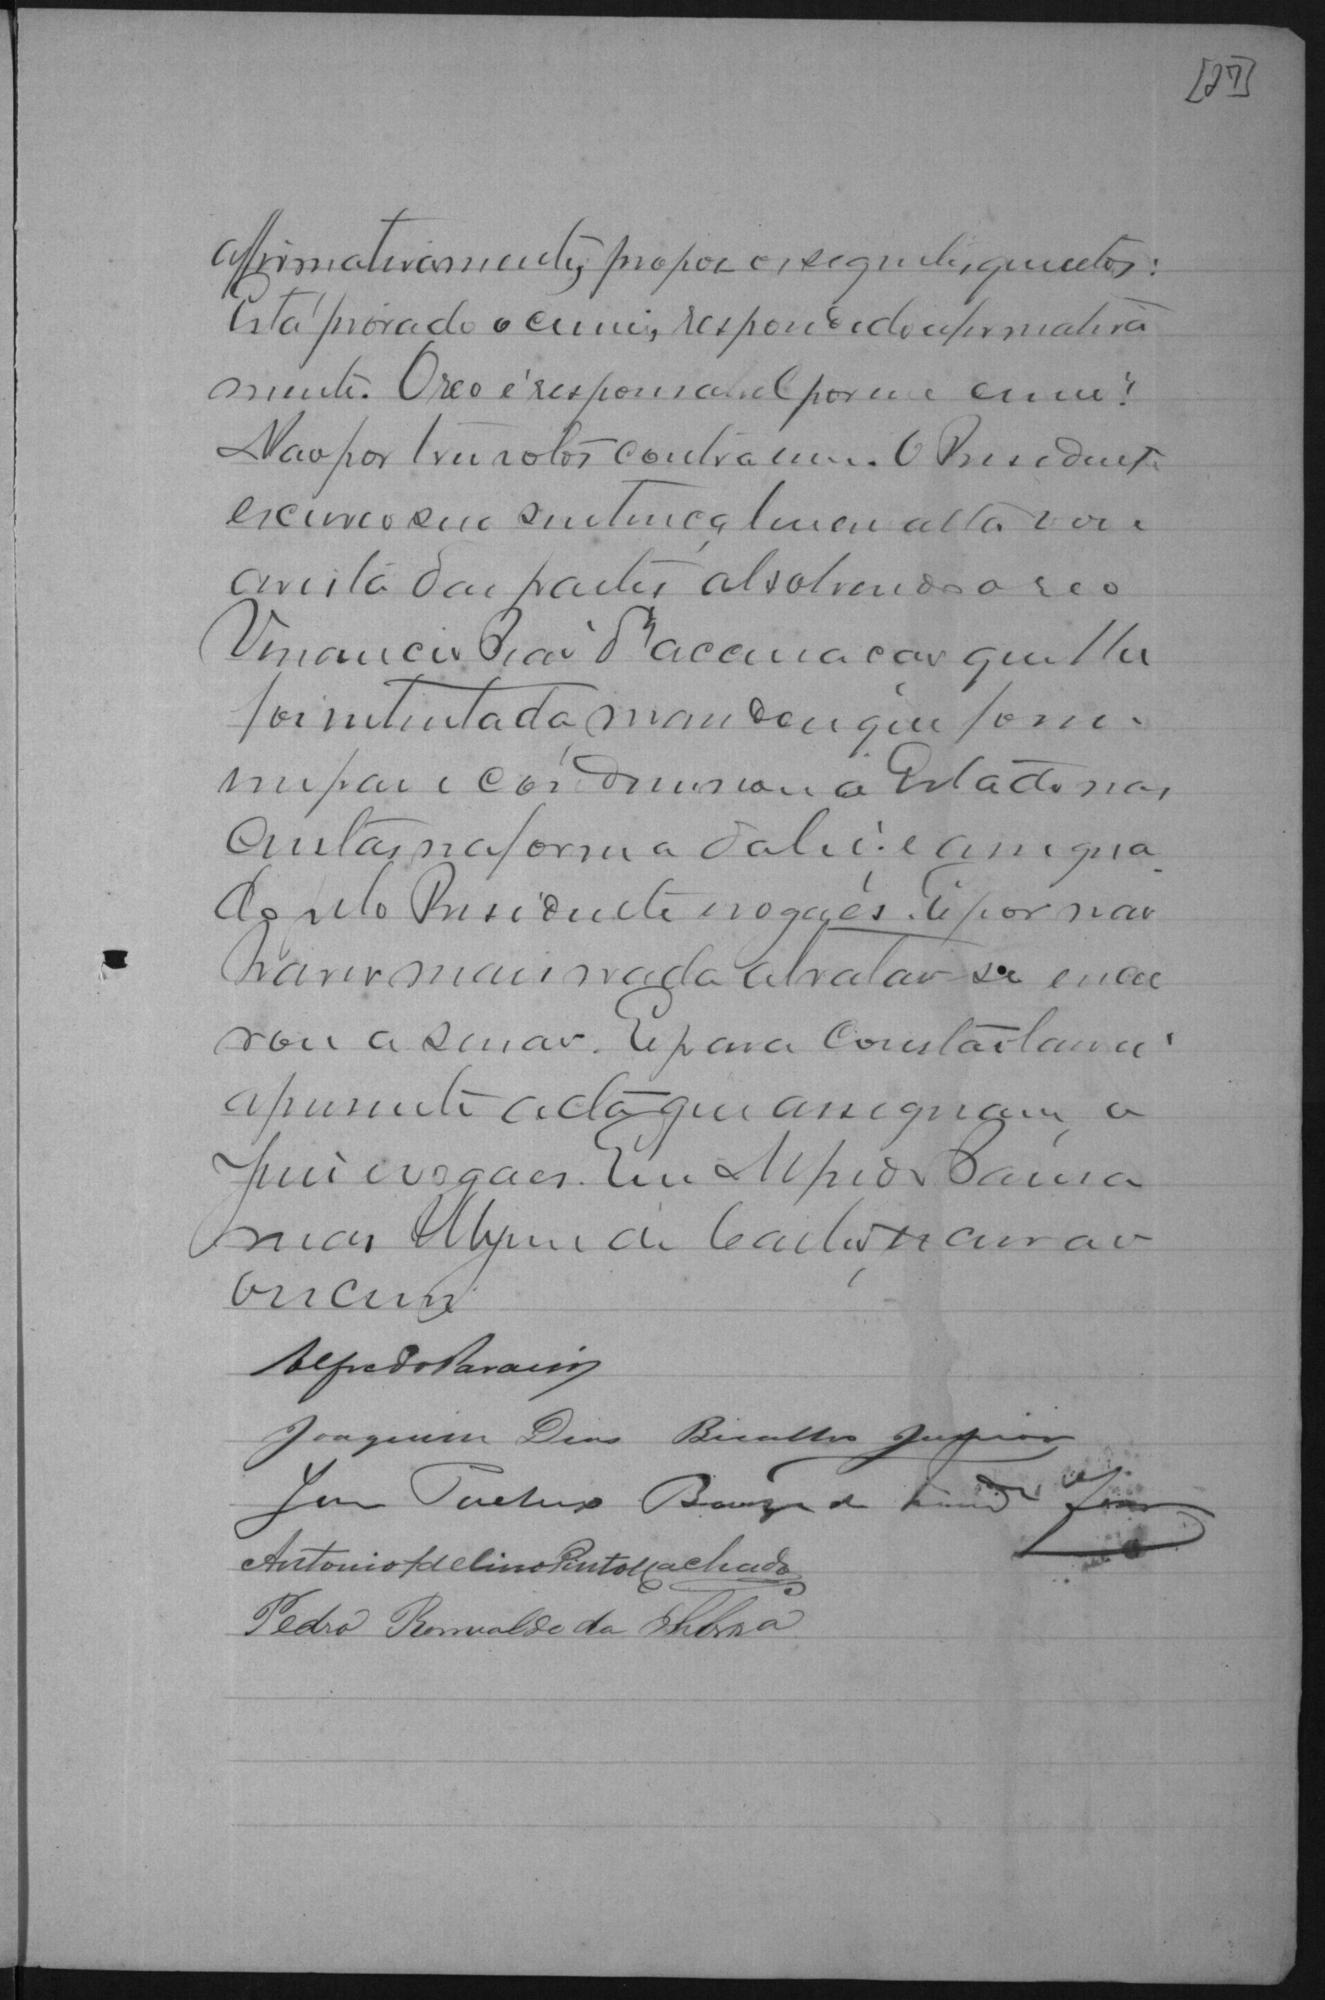 [27]
affirmativamente, propos os seguintes quesitos:
Está provado o crime, respondido afirmativa
mente. O reo é responsavel por esse crime?
Não por tres votos contra um. O Presidente
escreveo sua sentença leu em alta voz e
a vista das partes absolvendo o reo
Venancio da accusação que lhe
foi intentada, mandou que fosse
em paz e condemnou o Estado nas
Custas na forma da lei: e assigna
do pelo Presidente e vogaes. E por não
haver mais nada a tratar-se encer
rou a sessão. E para constar lavrei
a presente acta que assignam, o
Juiz e vogaes. Eu
de escrivão
escrevi
Alfredo
Joaquim Dias Bicalho Junior
Antonio Adelino Pinto Machado
Pedro Romualdo da Silva